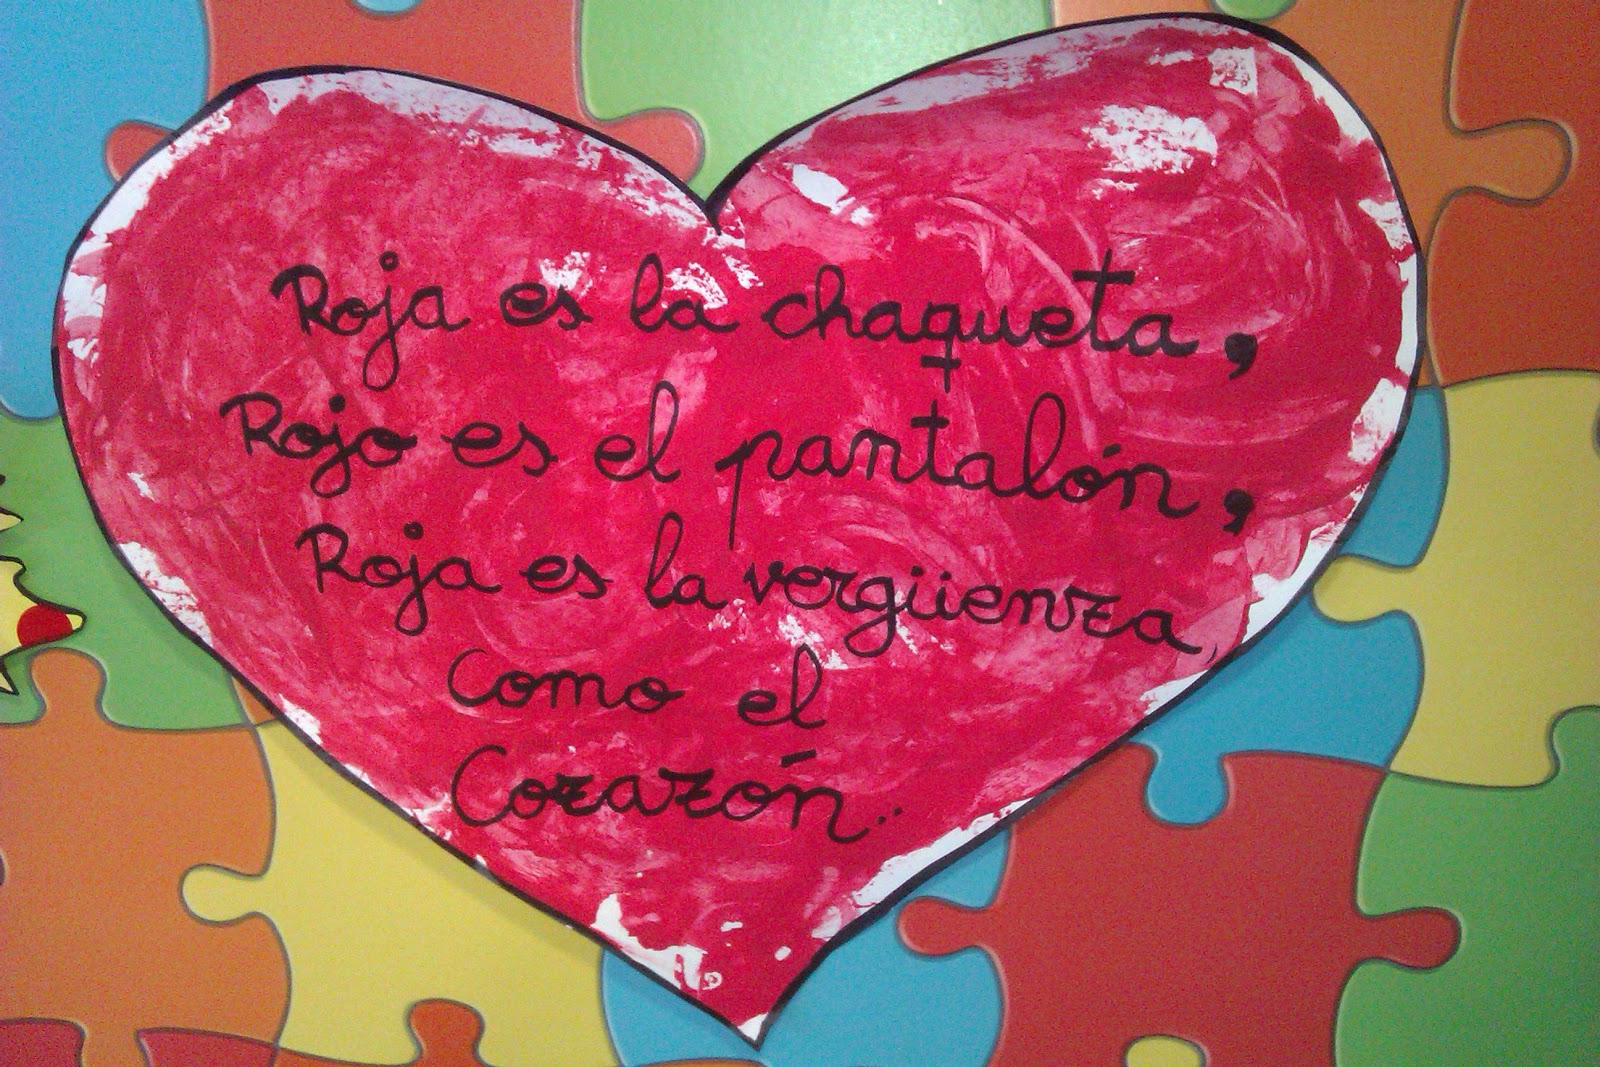 Roja es la chaqueta,
Rojo es el pantalón,
Roja es la vergüenza,
Como el
Corazón..